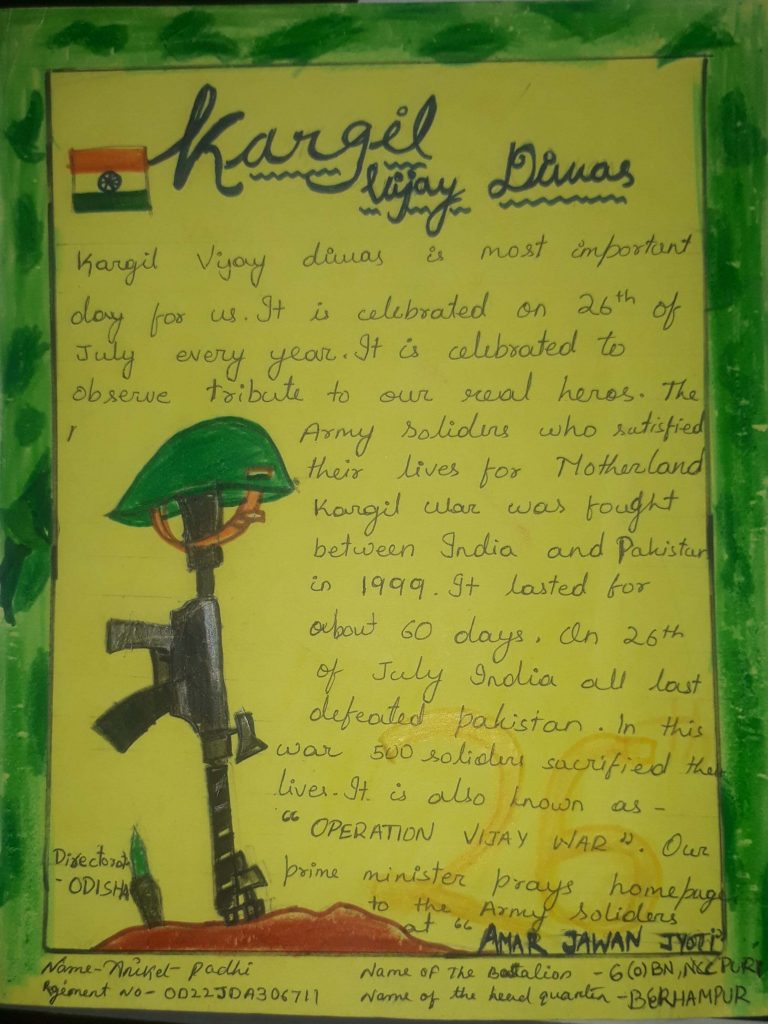 Kargil
Vijay Diwas
Kargil Vijay diwas is most important
day for us. It is celebrated on 26th of
July every year. It is celebrated to
observe tribute to our real heros. The
Army Soliders who satisfied
their lives for Motherland
Kargil war was fought
between India and Pakistan
in 1999. It lasted for
about 60 days. On 26th
of July India all last
defeated pakistan. In this
war 500 soliders sacrified their
lives. It is also known as -
"OPERATION VIJAY WAR". Our
prime minister prays homepage
to the Army Soliders
at "AMAR JAWAN JYOTI"
26
Directorat
- ODISHA
Name- Aniket Padhi
Regiment No- OD22JDA306711
Name of The Battalion - 6(O)BN, NCC PURI
Name of the head quarter - BERHAMPUR